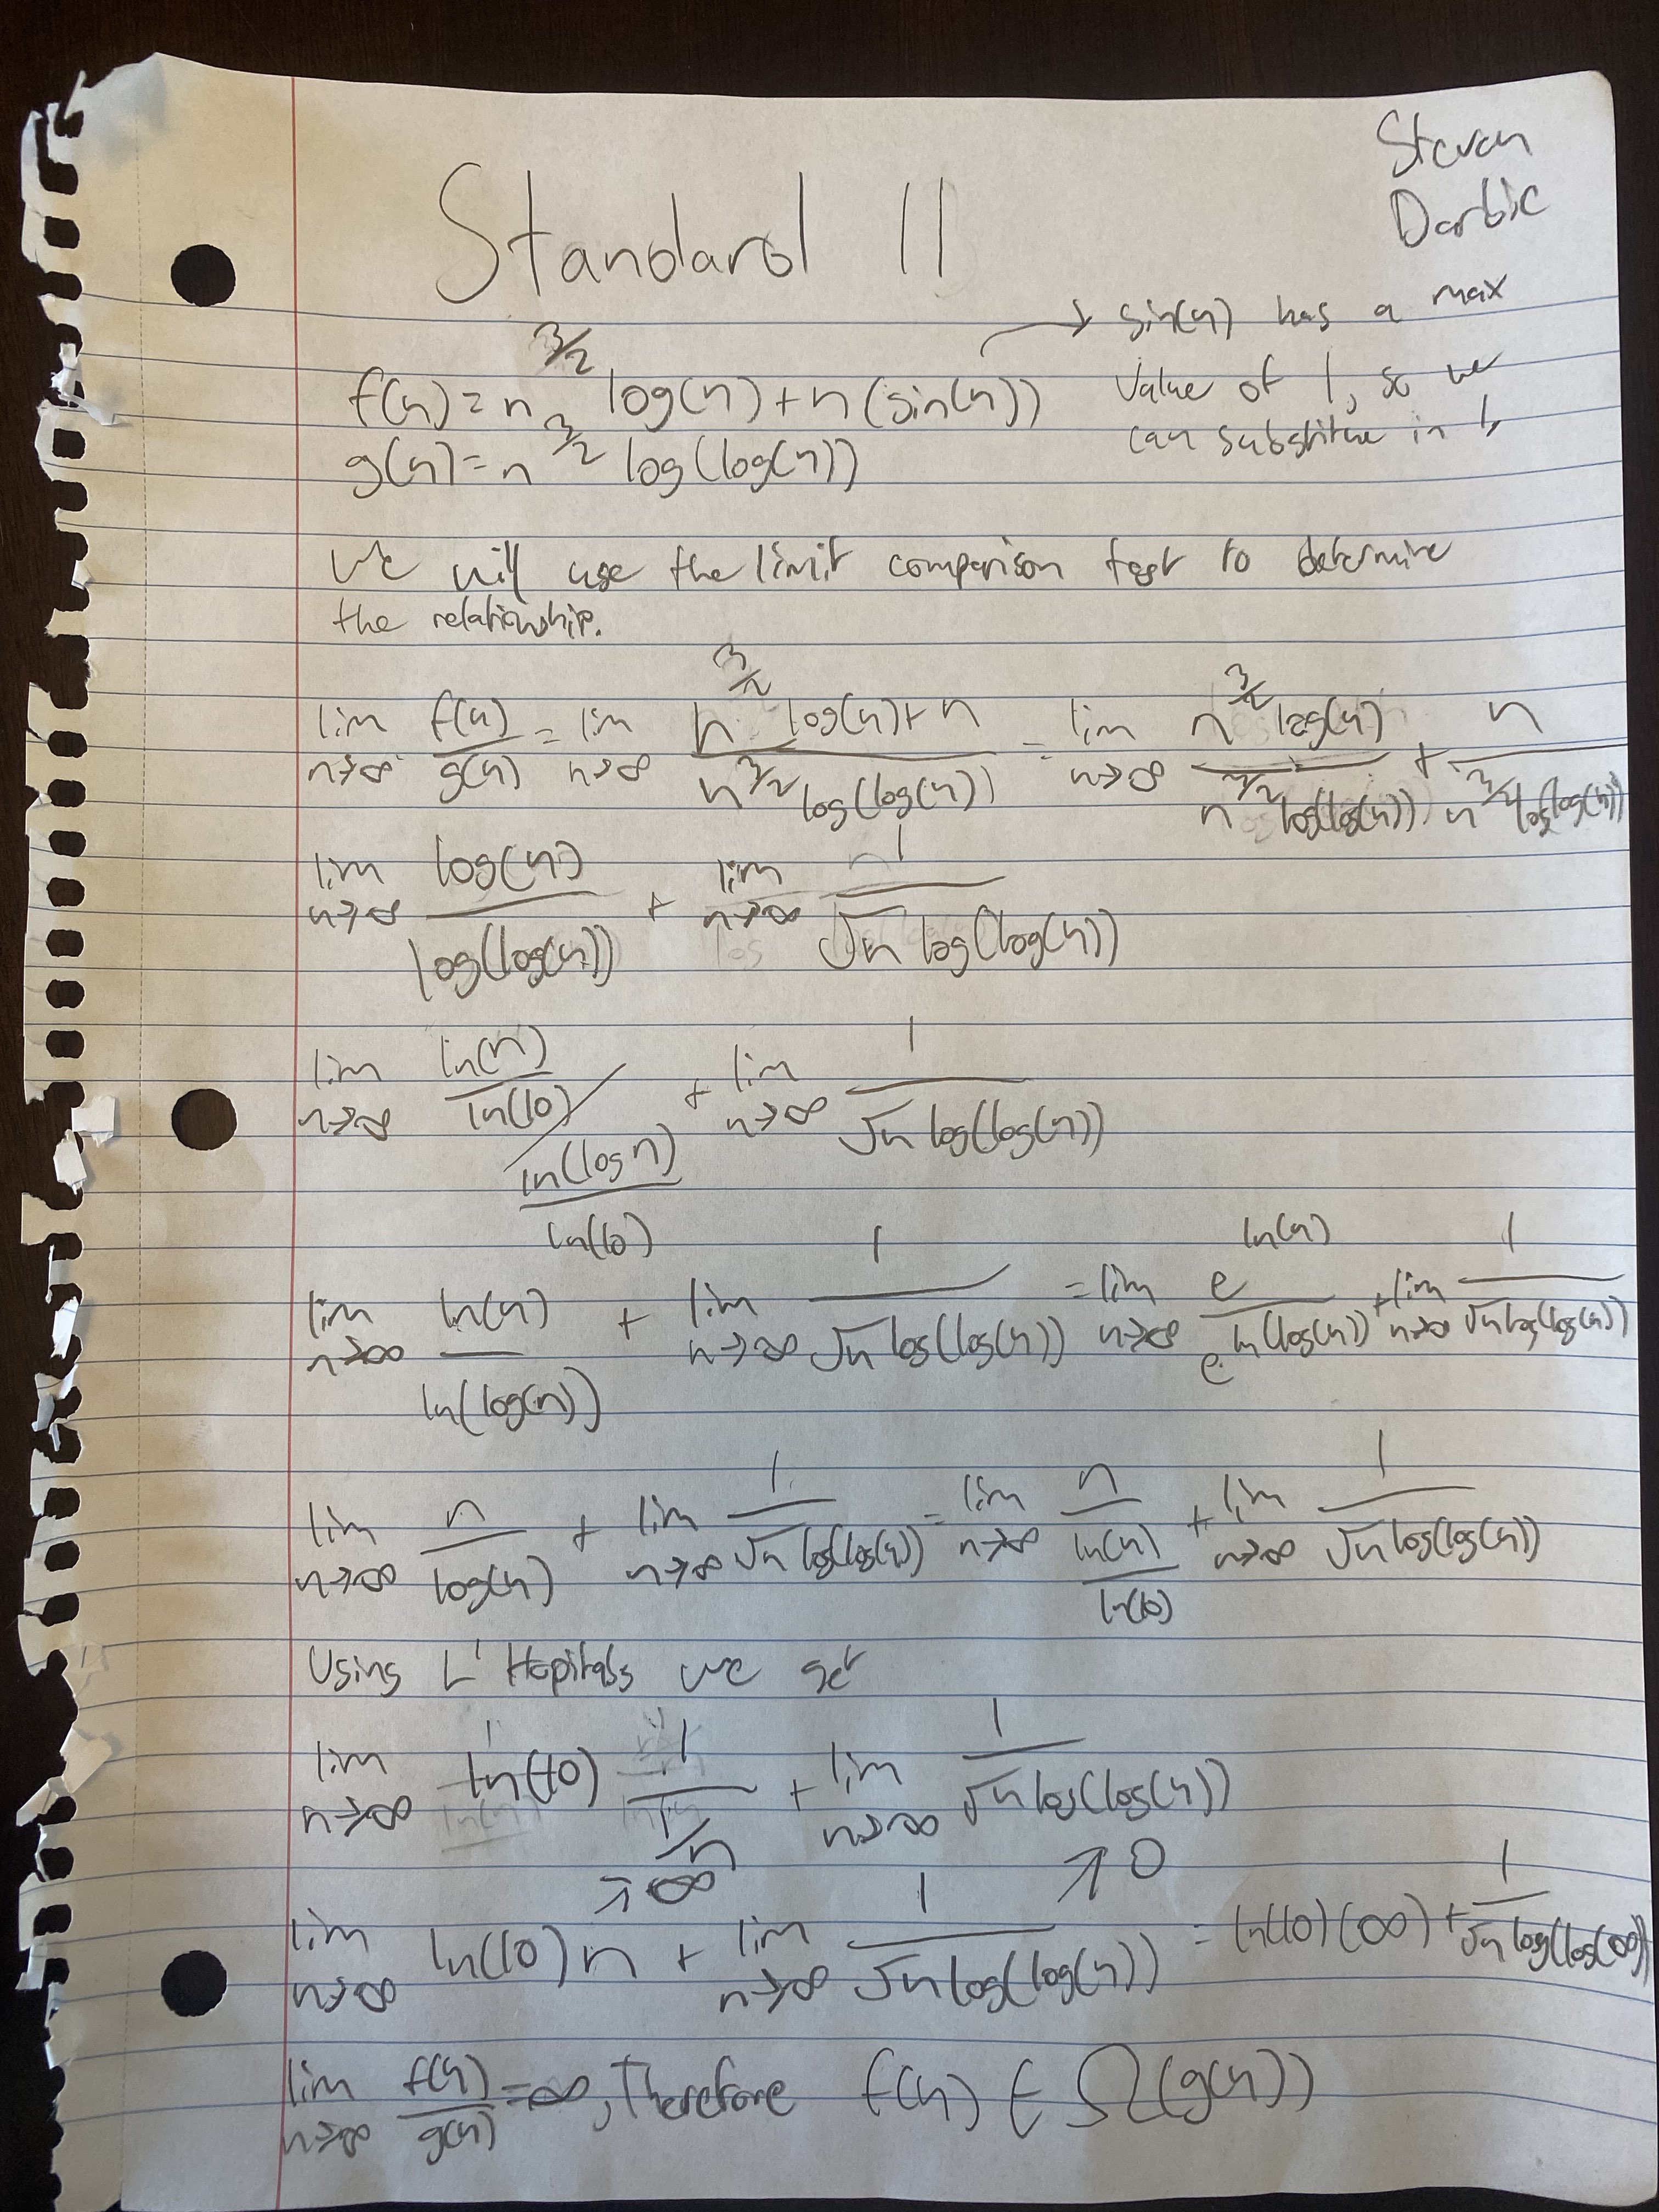 Steven
Darbie
Standard 11
→ sin(n) has a max
value of 1, so we
can substitue in 1.
f(n) = n^{3/2} log(n) + n(sin(n))
g(n) = n^{3/2} log(log(n))
We will use the limit comparison test to determine
the relationship.
lim_{n→∞} f(n)/g(n) = lim_{n→∞} (n^{3/2} log(n) + n)/(n^{3/2} log(log(n))) = lim_{n→∞} (n^{3/2} log(n))/(n^{3/2} log(log(n))) + n/(n^{3/2} log(log(n)))
lim_{n→∞} log(n)/log(log(n)) + lim_{n→∞} 1/(√n log(log(n)))
lim_{n→∞} (ln(n)/ln(10))/(ln(log n)/ln(10)) + lim_{n→∞} 1/(√n log(log(n)))
lim_{n→∞} ln(n)/ln(log(n)) + lim_{n→∞} 1/(√n log(log(n))) = lim_{n→∞} e^{ln(n)}/e^{ln(log(n))} + lim_{n→∞} 1/(√n log(log(n)))
lim_{n→∞} n/log(n) + lim_{n→∞} 1/(√n log(log(n))) = lim_{n→∞} n/(ln(n)/ln(10)) + lim_{n→∞} 1/(√n log(log(n)))
Using L'Hopitals we get
lim_{n→∞} ln(10) 1/(1/n) + lim_{n→∞} 1/(√n log(log(n)))
→ ∞ ↗ 0
lim_{n→∞} ln(10) n + lim_{n→∞} 1/(√n log(log(n))) = ln(10)(∞) + 1/(√n log(log(∞)))
lim_{n→∞} f(n)/g(n) = ∞, Therefore f(n) ∈ Ω(g(n))